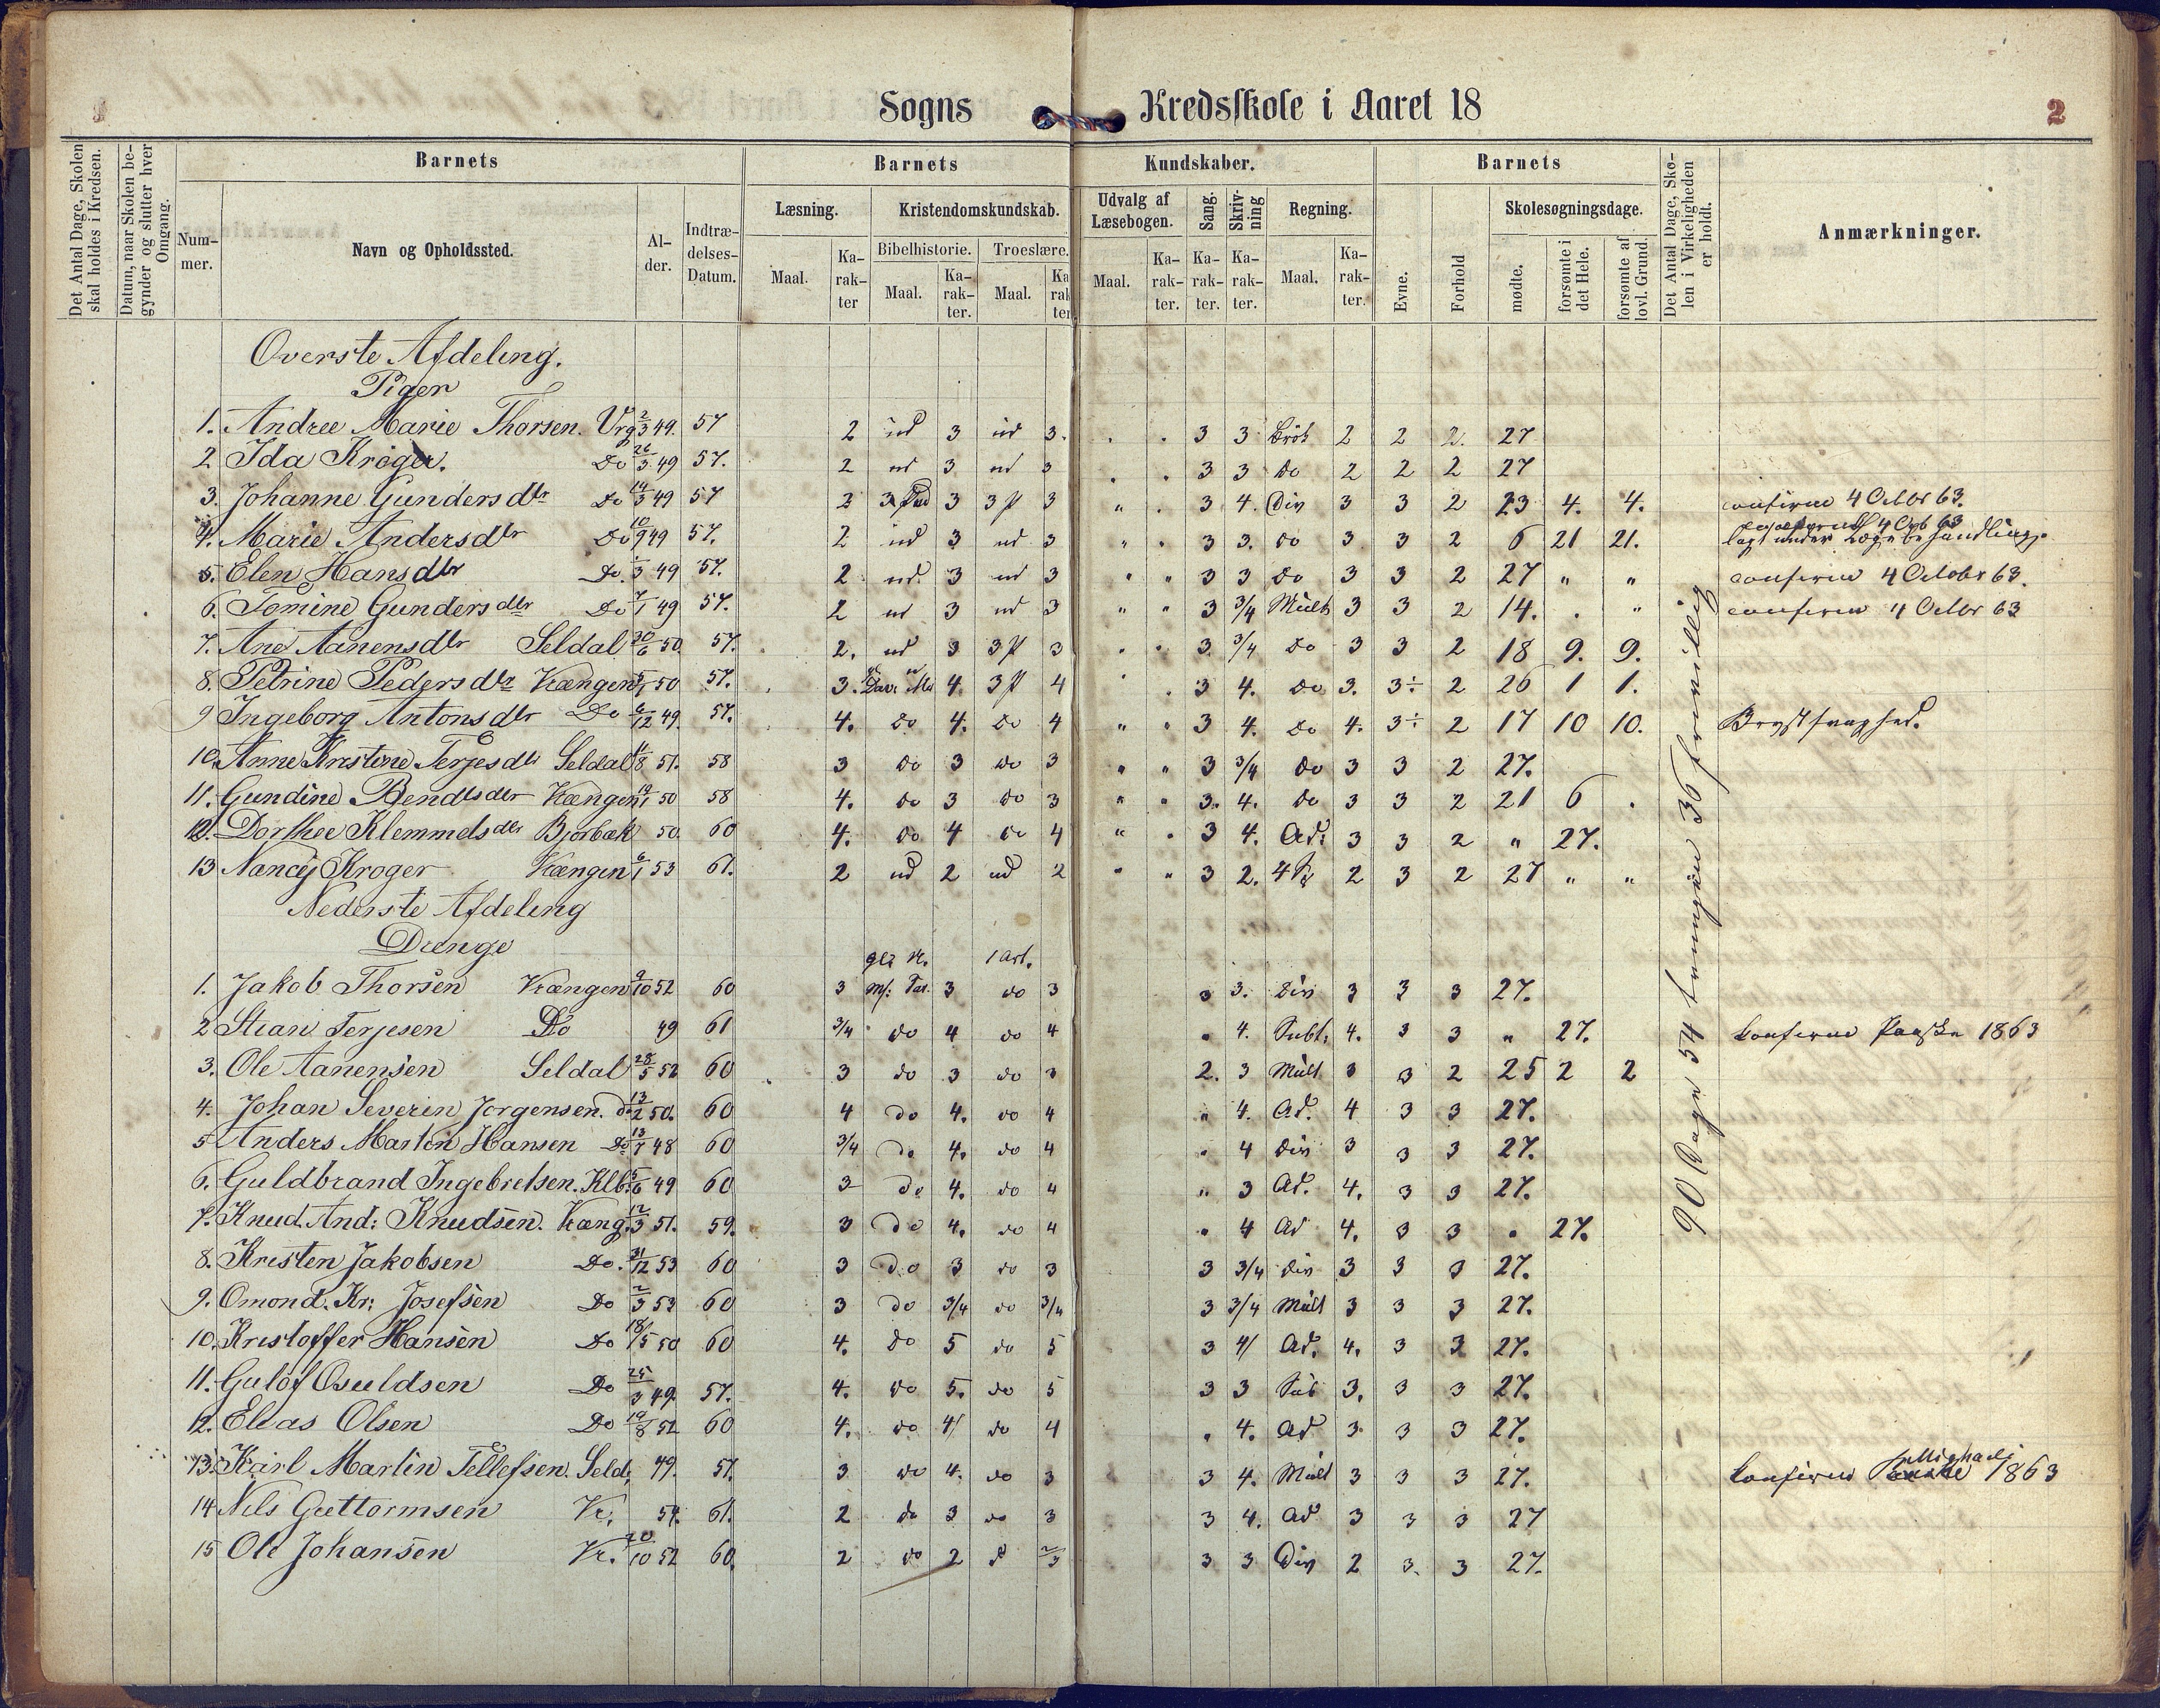 Sogns Kredsskole i Aaret 18
2
Det Antal Dage, Skolen skal holdes i Kredsen.
Datum, naar Skolen begynder og slutter hver Omgang.
Barnets
Nummer.
Navn og Opholdssted.
Alder.
Indtrædelses-Datum.
Barnets Kundskaber.
Læsning.
Maal. Karakter
Kristendomskundskab.
Bibelhistorie. Troeslære.
Maal. Karakter. Maal. Karakter
Udvalg af Læsebogen.
Maal. Karakter.
Sang. Karakter.
Skrivning Karakter.
Regning.
Maal. Karakter.
Barnets
Evne. Forhold
Skolesøgningsdage.
mødte. forsømte i det Hele. forsømte af lovl. Grund.
Det Antal Dage, Skolen i Virkeligheden er holdt.
Anmærkninger.
Overste Afdeling.
Piger
1. Andree Marie Thorsen. Vrg 2/3 49. 57 2 ud 3 ud 3. 3 3 Brök 2 2 2. 27
2 Ida Krøger. Do 26/3 49 57. 2 ud 3 ud 3 3 3 Do 2 2 2 27
3. Johanne Gundersdtr Do 14/3 49 57 2 3 3 P 3 " 3 4. Div 3 3 2 23 4. 4. confirm 4 Octbr 63.
4. Marie Andersdtr Do 10/9 49 57. 2 ud 3 ud 3 " " 3 3. do 3 3 2 6 21 21. lagt under Lægebehandling.
5. Elen Hansdtr Do. 3 49 57. 2 ud. 3 ud 3 " " 3 3 Do 3 3 2 27 " " confirm 4 Octobr 63.
6. Tomine Gundersdtr Do 7/1 49 57. 2 ud 3 ud 3 " " 3 3/4 Mult 3 3 2 14. . " confirm 4 Octbr 63
7. Ane Aanensdtr Seldal 30/6 50. 57. 2. ud 3 3 P 3 " " 3. 3/4 Do 3 3 2 18 9. 9.
8. Petrine Pedersdtr Vrængen 50 57. 3. 4. 3 P 4 3 4. Do 3. 3÷ 2 26 1 1.
9 Ingeborg Antonsdtr Do 6/12 49. 57. 4. Do 4. Do 4 " " 3 4. Do 4. 3÷ 2 17 10 10. Brystsvaghed.
10. Anne Kristine Terjesdtr Seldal 11/8 51. 58 3 Do 3 Do 3 " " 3 3/4 Do 3 3 2 27.
11. Gundine Bendtsdtr Vrængen 19/1 50 58 4. do 3 do 3 " " 3. 4. Do 3 3 2 21 6 .
12. Dorthee Klemmetsdtr Bjorbæk 50. 60 4. Do 4 Do 4 " . 3 4. Ad: 3 3 2 " 27.
13 Nancy Kroger Vrængen 6/1 53 61. 2 ud 2 ud 2 " " 3 2. 2 3 2 27 " "
Nederste Afdeling
Drenge
1. Jakob Thorsen Vrængen 9/10 52 60 3 3 1 Art. do 3 3 3. Div 3 3 3 27.
2 Stian Terjesen Do 49 61 3/4 do 4 do 4 " 4. Subt: 4. 3 3 " 27. Confirm Paaske 1863
3. Ole Aanensen Seldal 28/5 52 60 3 do 3 do 3 2. 3 Mult 3 3 2 25 2 2
4. Johan Severin Jorgensen. do 13/2 50. 60 4 do 4. do 4 " 4. Ad. 4 3 3 27.
5 Anders Martin Hansen Do 13/7 48 60 3/4 Do 4. do 4 . 4 Div 3 3 3 27.
6. Guldbrand Ingebretsen. Klb. 5/6 49 60 3 do 4. do 4 " 3 Ad. 4. 3 3 27.
7. Knud. And: Knudsen. Vræng. 12/3 51. 59. 3 do 4. do 4 . 4 Ad 4. 3 3 . 27.
8. Kristen Jakobsen Do. 31/12 53 60 3 do 3 do 3 3 3/4 Div 3 3 3 27.
9. Omond. Kr: Josefsen Do 2/3 53 60 3 do 3/4 do 3/4 3 3/4 Mult 3 3 3 27.
10. Kristoffer Hansen Do 18/5 50 60 4. do 5 do 5 3 4/ Ad. 4. 3 3 27.
11. Gulof Osuldsen Do 25/3 49. 57. 4. do 5. do 5 3 3 Sub 3. 3 3 27.
12. Elias Olsen Do 19/8 52 60 4. do 4/ do 4 . 4. Ad 3. 3 3 27.
13. Karl Martin Tellefsen. Seld, 49. 57. 3 do 4. do 3 3 4. Mult 3 3 3 27. Confirm Mighaeli 1863
14 Nils Guttormsen Vr. 54. 61. 2 do 3 do 3 3 4. Ad 3 3 3 27
15 Ole Johansen Vr. 20/10 52 60. 2 do 2 d 2/3 3 3 Div 2 3. 3 27.
90 Dage 54 tvungen 36 frivillig